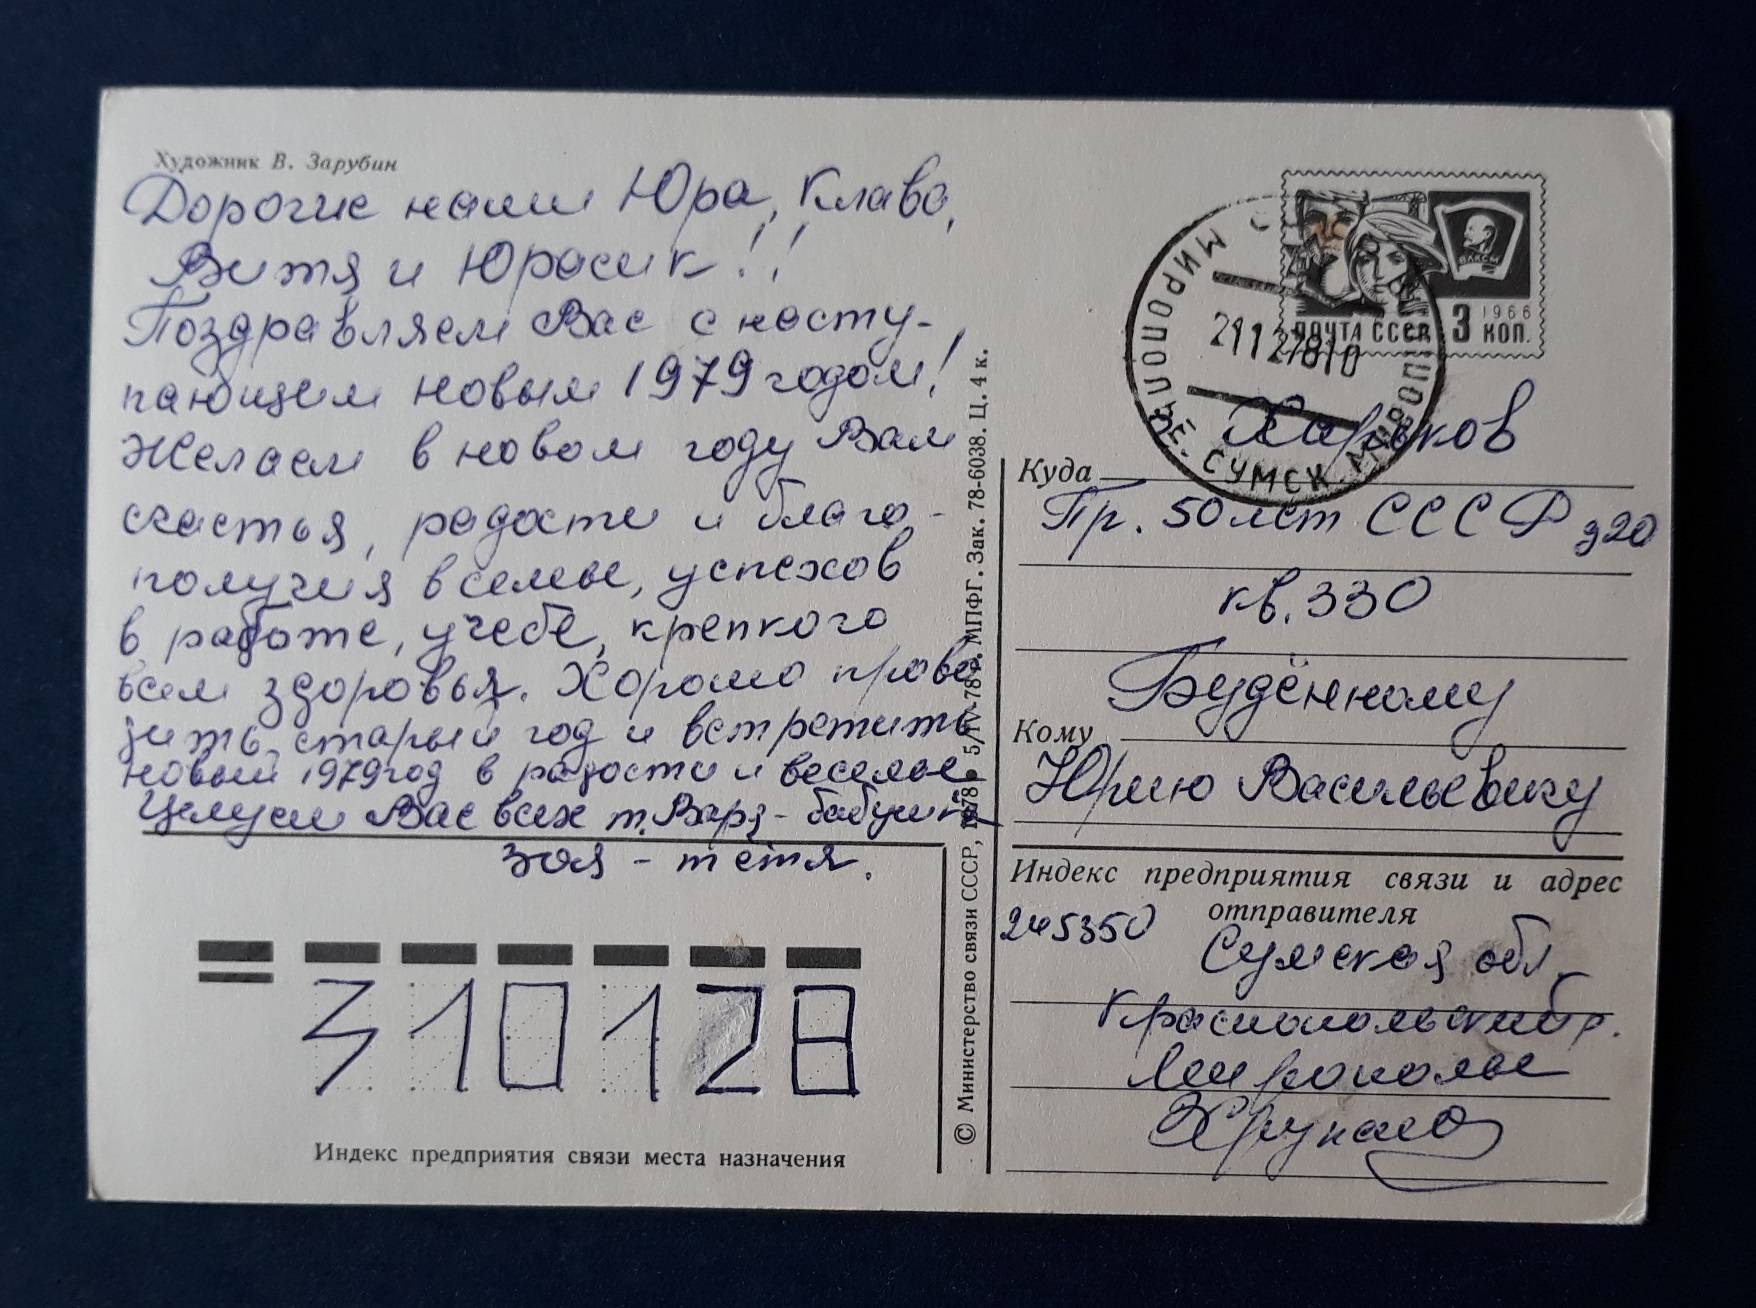 Художник В. Зарубин
Дорогие наши Юра, Клава,
Витя и Юрасик!!
Поздравляем Вас с насту-
пающим новым 1979 годом!
Желаем в новом году Вам
счастья, радости и благо-
получия в семье, успехов
в работе, учебе, крепкого
всем здоровья. Хорошо прово
дить старый год и встретить
новый 1979 год в радости и веселье
Целуем Вас всех т. Варя - бабушка
Зоя - тётя.
310128
Индекс предприятия связи места назначения
© Министерство связи СССР, 1978 г. 5/IV-78 г. МПФГ. Зак. 78-6038. Ц. 4 к.
ВЛКСМ
1966
ПОЧТА СССР 3 КОП.
МИРОПОЛЬЕ СУМСК. МИРОП
21127810
Харьков
Куда
Пр. 50 лет СССР д 20
кв. 330
Будённому
Кому
Юрию Васильевичу
Индекс предприятия связи и адрес
отправителя
245350
Сумская обл.
Краснопольский р.
Мирополье